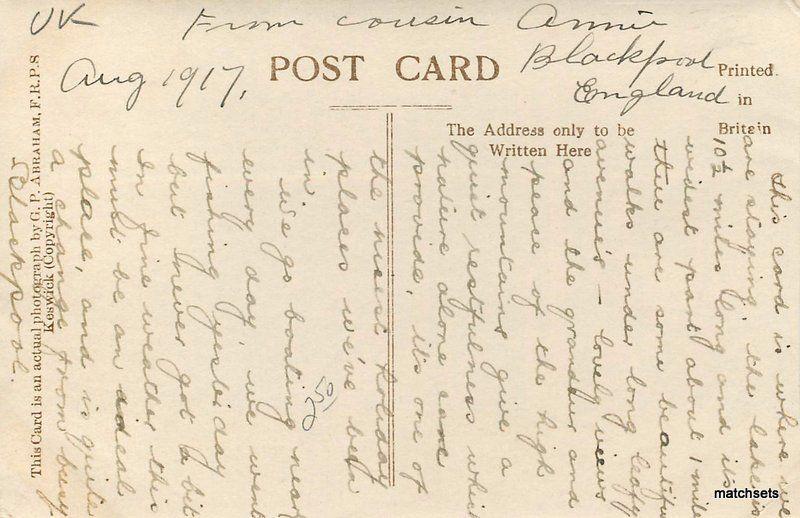 UK From cousin Annie
Blackpool
England
Aug 1917,
POST CARD
Printed
in
Britain
The Address only to be
Written Here
This Card is an actual photograph by G. P. ABRAHAM, F.R.P.S
Keswick (Copyright)
This card is where we
are staying, the lake is
10½ miles long and its
widest part about 1 mile
there are some beautiful
walks under long leafy
avenue's – lovely views
and the grandeur and
peace of the high
mountains give a
quiet restfulness which
nature alone can
provide, it's one of
the nicest holiday
places we've been
in
We go boating nearly
every day, we went
fishing yesterday
but never got a bite
In fine weather this
must be an ideal
place, and is quite
a change from busy
Blackpool.
250
matchsets